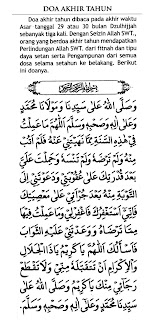 DOA AKHIR TAHUN
Doa akhir tahun dibaca pada akhir waktu
Asar tanggal 29 atau 30 bulan Dzulhijjah
sebanyak tiga kali. Dengan Seizin Allah SWT.,
orang yang berdoa akhir tahun mendapatkan
Perlindungan Allah SWT. dari fitnah dan tipu
daya setan serta Pengampunan dari semua
dosa selama setahun ke belakang. Berikut
Ini doanya.
وَصَلَّى اللهُ عَلَى سَيِّدِنَا وَمَوْلَانَا مُحَمَّدٍ
وَعَلَى اٰلِهِ وَصَحْبِهِ وَسَلَّمَ اَللّٰهُمَّ مَا عَمِلْتُ
فِيْ هٰذِهِ السَّنَةِ مِمَّا نَهَيْتَنِيْ عَنْهُ فَلَمْ اَتُبْ
مِنْهُ وَلَمْ تَرْضَهُ وَلَمْ تَنْسَهُ وَحَلُمْتَ عَلَيَّ
بَعْدَ قُدْرَتِكَ عَلَى عُقُوْبَتِيْ وَدَعَوْتَنِيْ اِلَى
التَّوْبَةِ مِنْهُ بَعْدَ جُرْأَتِيْ عَلَى مَعْصِيَتِكَ
فَاِنِّيْ اَسْتَغْفِرُكَ فَاغْفِرْ لِيْ وَمَا عَمِلْتُ فِيْهَا
مِمَّا تَرْضَاهُ وَوَعَدْتَنِيْ عَلَيْهِ الثَّوَابَ
فَاَسْأَلُكَ اَللّٰهُمَّ يَا كَرِيْمُ يَا ذَا الْجَلَالِ
وَالْاِكْرَامِ اَنْ تَتَقَبَّلَهُ مِنِّيْ وَلَا تَقْطَعْ
رَجَائِيْ مِنْكَ يَا كَرِيْمُ وَصَلَّى اللهُ عَلَى
سَيِّدِنَا مُحَمَّدٍ وَعَلَى اٰلِهِ وَصَحْبِهِ وَسَلَّمَ.